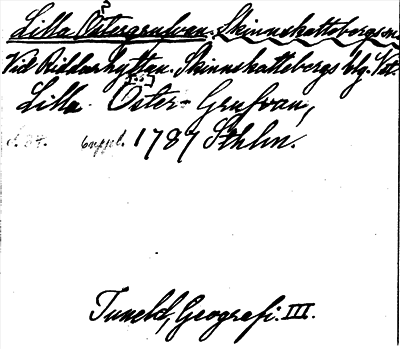 Lilla Östergrufvan. Skinnskattebergs sn
Vid Riddarhyttan. Skinnskattebergs blg. Vstl.
Lilla Öster-Grufvan,
1787 Sthlm.
Tuneld, Geografi. III.